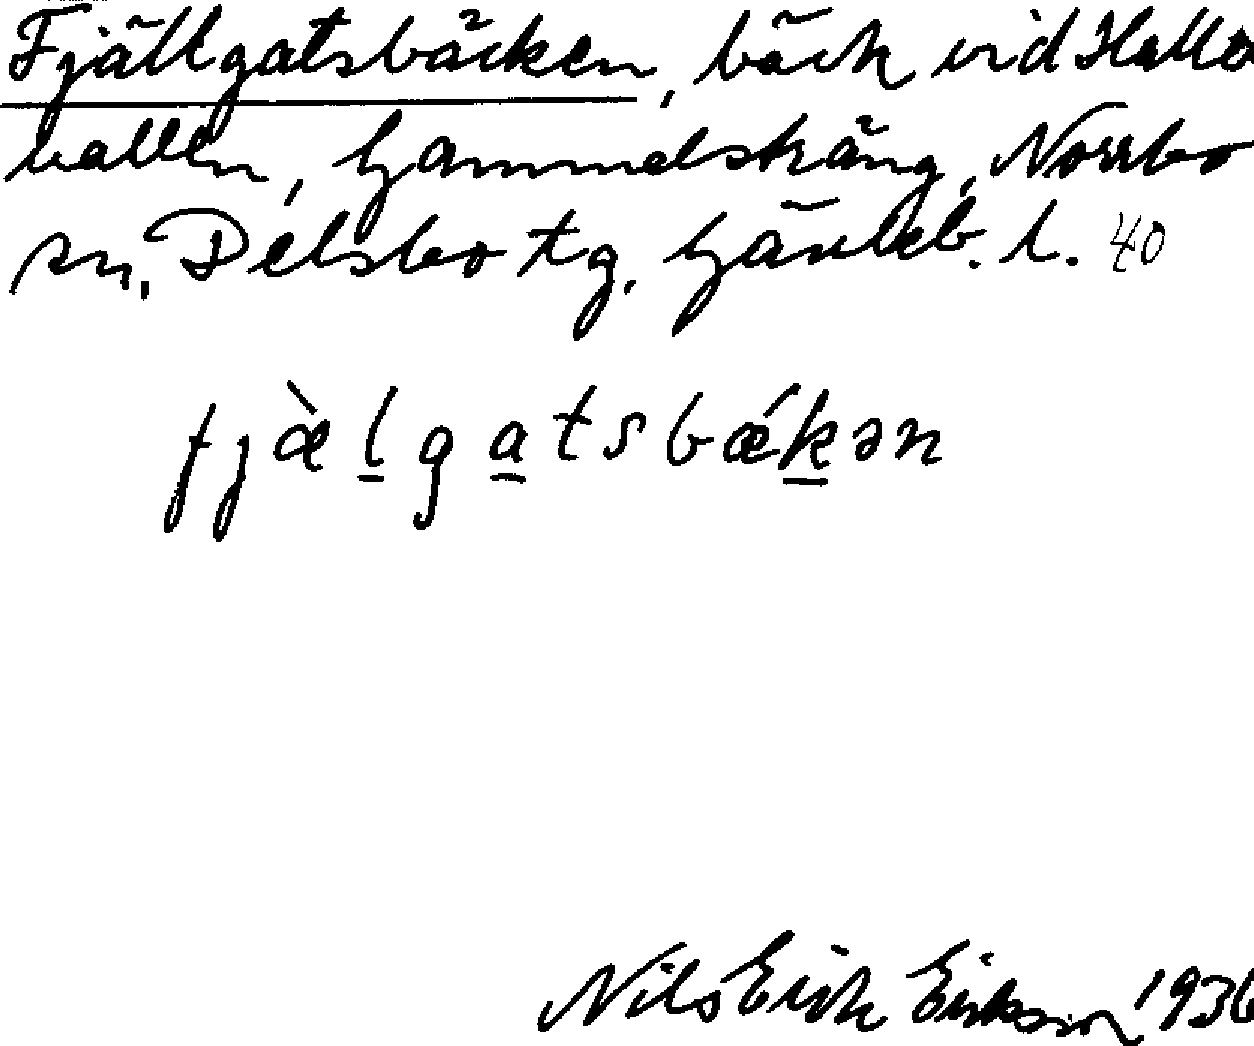 Fjällgatsbäcken, bäck vid Hallo
vallen, Gammelsträng, Norrbo
sn, Delsbo tg. Gävleb. l. 40
fjæ̀l̲ga̲tsbǽk̲ən
Nils Erik Erikson 1936